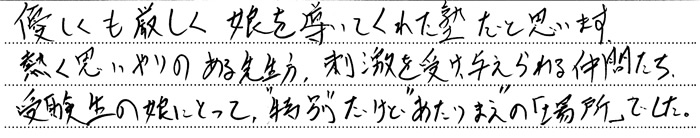 優しくも厳しく娘を導いてくれた塾だと思います。
熱く思いやりのある先生方，刺激を受け，与えられる仲間たち．
受験生の娘にとって，"特別"だけど"あたりまえ"の「場所」でした。